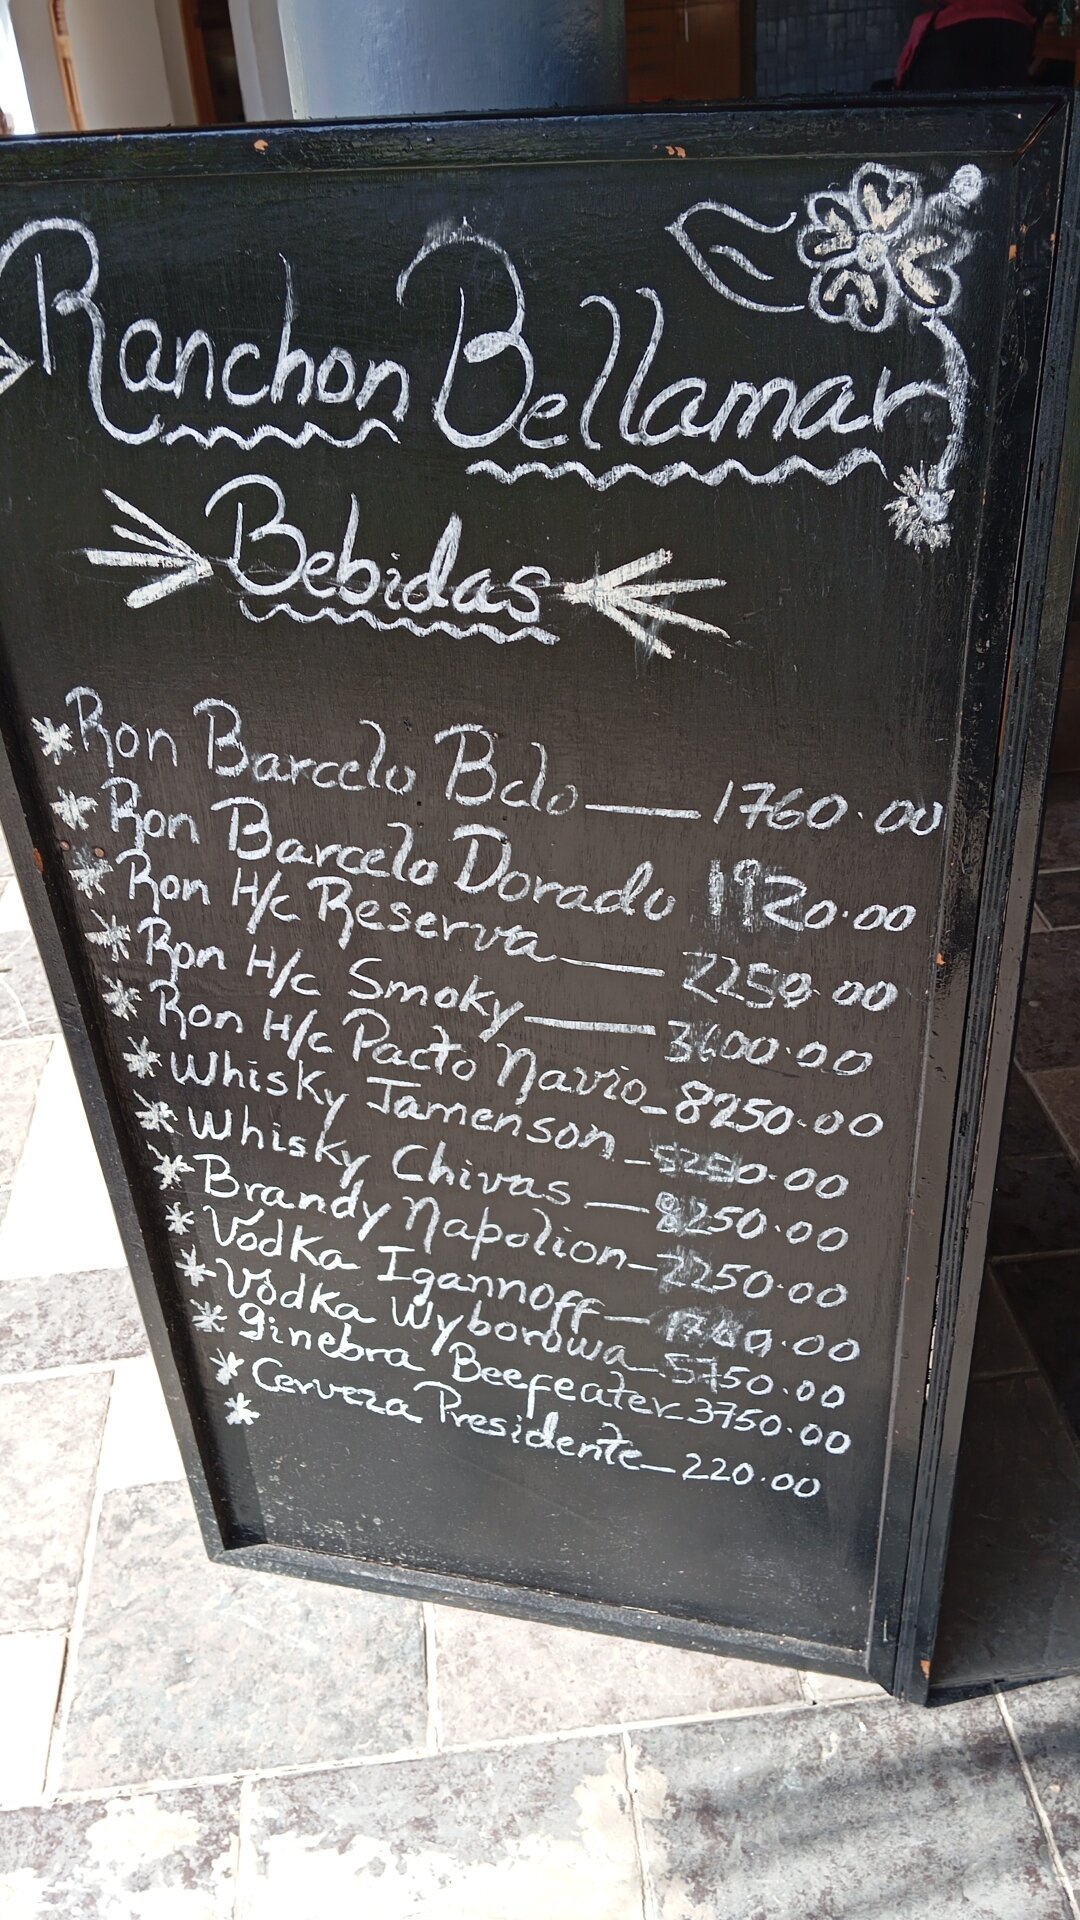 Ranchon Bellamar
Bebidas
Ron Barcelo Bclo — 1760.00
Ron Barcelo Dorado 1920.00
Ron H/c Reserva — 2250.00
Ron H/c Smoky — 3600.00
Ron H/c Pacto Navio - 8250.00
Whisky Jamenson - 5250.00
Whisky Chivas — 8250.00
Brandy Napolion - 2250.00
Vodka Igannoff —
Vodka Wyborowa - 5750.00
Ginebra Beefeater - 3750.00
Cerveza Presidente - 220.00